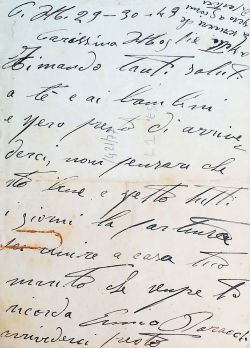 29-30-49
Carissima Moglie
Rimando tanti saluti
a te e ai bambini
e spero presto di arrive
derci, non pensare che
sto bene e aspetto tutti
i giorni la partenza
per venire a casa tuo
marito che sempre ti
ricorda Enrico
arrivederci presto